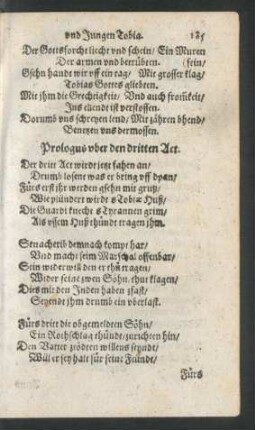 vnd Jungen Tobia. 185
Der Gottsforcht liecht vnd schein/ Ein Muren
Der armen vnd betrübten. (sein/
Gsehn hand wir vff ein tag/ Mit grosser klag/
Tobias Gottes gliebten.
Mit jhm die Grechtigkeit/ Vnd auch fromkeit/
Ins ellend ist verstossen.
Dorumb vns schreyen lend/ Mit zähren bhend/
Benetzen vns dermossen.
Prologus vber den dritten Act.
Der drit Act wirdt jetzt fahen an/
Drumb losent was er bring vff dpan/
Fürs erst jhr werden gsehn mit gruß/
Wie plündert wirdt sTobiæ Huß/
Die Guardi knecht sTyrannen grim/
Als vssem Huß thündt tragen jhm.
Senacherib demnach kompt har/
Vnd macht seim Marschal offenbar/
Sein widerwill den er thut tragen/
Wider seine zwen Söhn thut klagen/
Dies mit den Juden haben zfast/
Seyendt jhm drumb ein vberlast.
Fürs dritt die obgemeldten Söhn/
Ein Rothschlag thündt zurichten hin/
Den Vatter ztödten willens seyndt/
Will er sey halt für seine Fündt/
Fürs